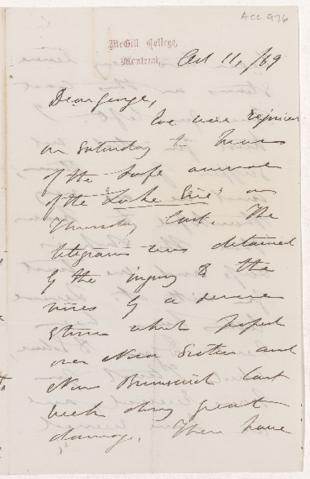 ACC 976
McGill College,
Montreal,
Oct 11, /69
Dear George,
We were rejoiced
on Saturday to hear
of the safe arrival
of the Lake Erie on
Thursday last. The
telegram was detained
by the injury to the
wires by a severe
storm which passed
over Nova Scotia and
New Brunswick last
week doing great
damage. There have